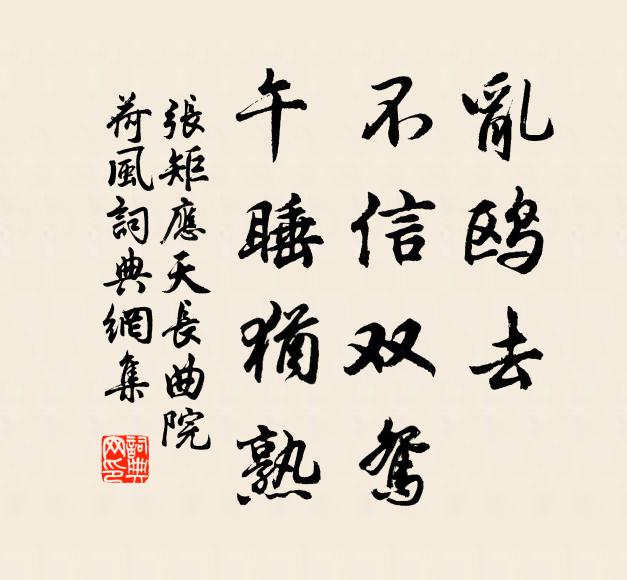 亂鸥去
不信双鸳
午睡猶熟
張矩應天長曲院
荷風詞典網集
詞典
网印